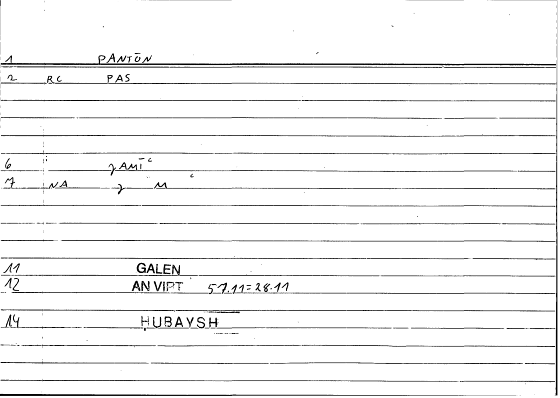 1 PANTŌN
2 RC PAS
6 ǧAMĪʿ
7 NA ǧ M ʿ
11 GALEN
12 AN VIRT 57.11=28.11
14 ḤUBAYSH